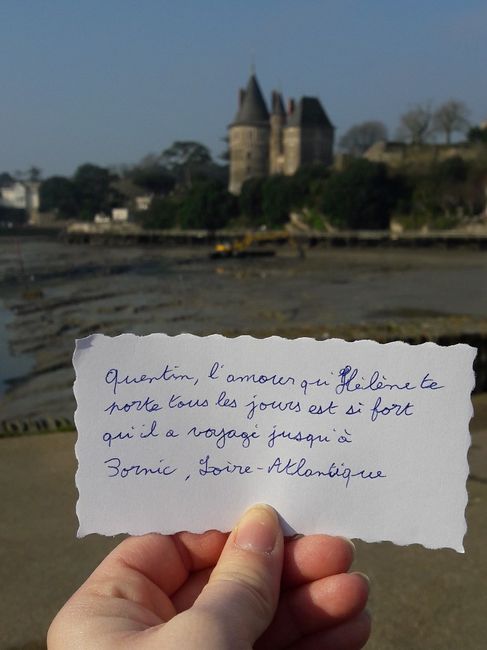 Quentin, l'amour qu'Hélène te
porte tous les jours est si fort
qu'il a voyagé jusqu'à
Pornic, Loire-Atlantique